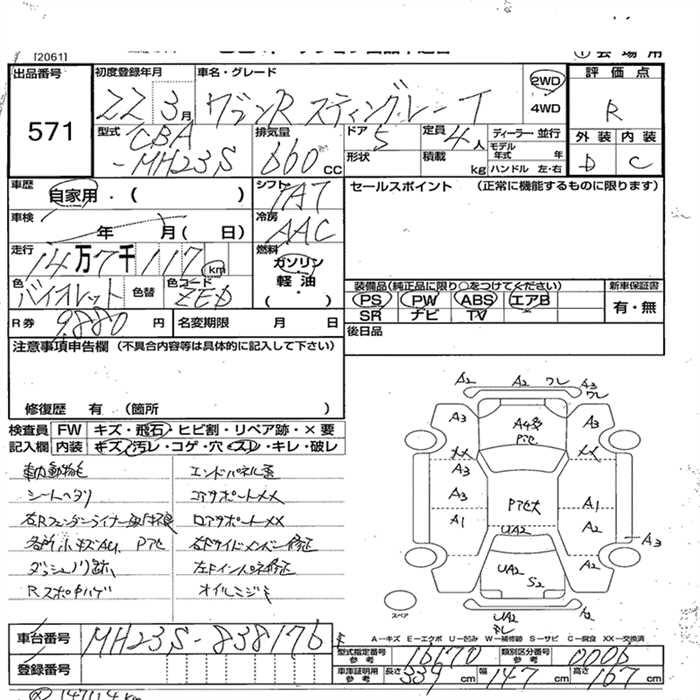 [2061]
出品番号
571
初度登録年月
22 3月
車名・グレード
ワゴンR スティングレー T
2WD
4WD
評価点
R
外装 内装
D C
型式
CBA
-MH23S
排気量
660 cc
ドア
5
形状
定員
4人
積載 kg
ディーラー・並行
モデル年式 年
ハンドル 左・右
車歴
自家用・( )
車検
年 月(日)
走行
14万7千117 km
シフト
IAT
冷房
AAC
燃料
ガソリン
軽油・
( )
セールスポイント (正常に機能するものに限ります)
色
バイオレット
色替
色コード
ZED
R券 9,880 円
名変期限 月 日
装備品(純正品に限り○をつけてください)
PS PW ABS エアB
SR ナビ TV
新車保証書
有・無
後日品
注意事項申告欄 (不具合内容等は具体的に記入して下さい)
修復歴 有 (箇所 )
検査員記入欄
FW キズ・飛石・ヒビ割・リペア跡・×要
内装 キズ・汚レ・コゲ・穴・スレ・キレ・破レ
シートヘタリ
ダッシュノリ跡
オイルニジミ
エンドパネル歪
コアサポートXX
ロアサポートXX
A2 A2 ワレ A3 ワレ
A3 A3
XX XX
A3
A3 A1
A1 A2
A3
UA2
A2
UA2
S2
UA2
スペア
A―キズ E―エクボ U―凹み W―補修跡 S―サビ C―腐食 XX―交換済
車台番号 MH23S-838176
登録番号
型式指定番号 参考 16670
類別区分番号 参考 0006
車庫証明用 参考 長さ 339 cm 幅 147 cm 高さ 167 cm